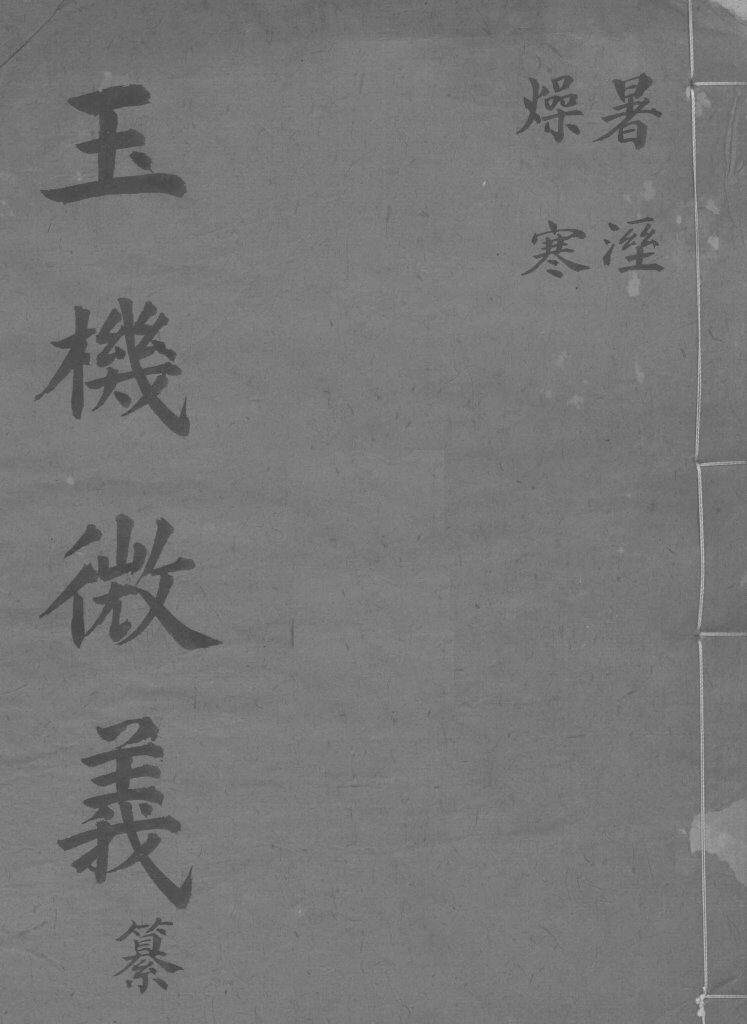 暑溼
燥寒
玉機微義纂